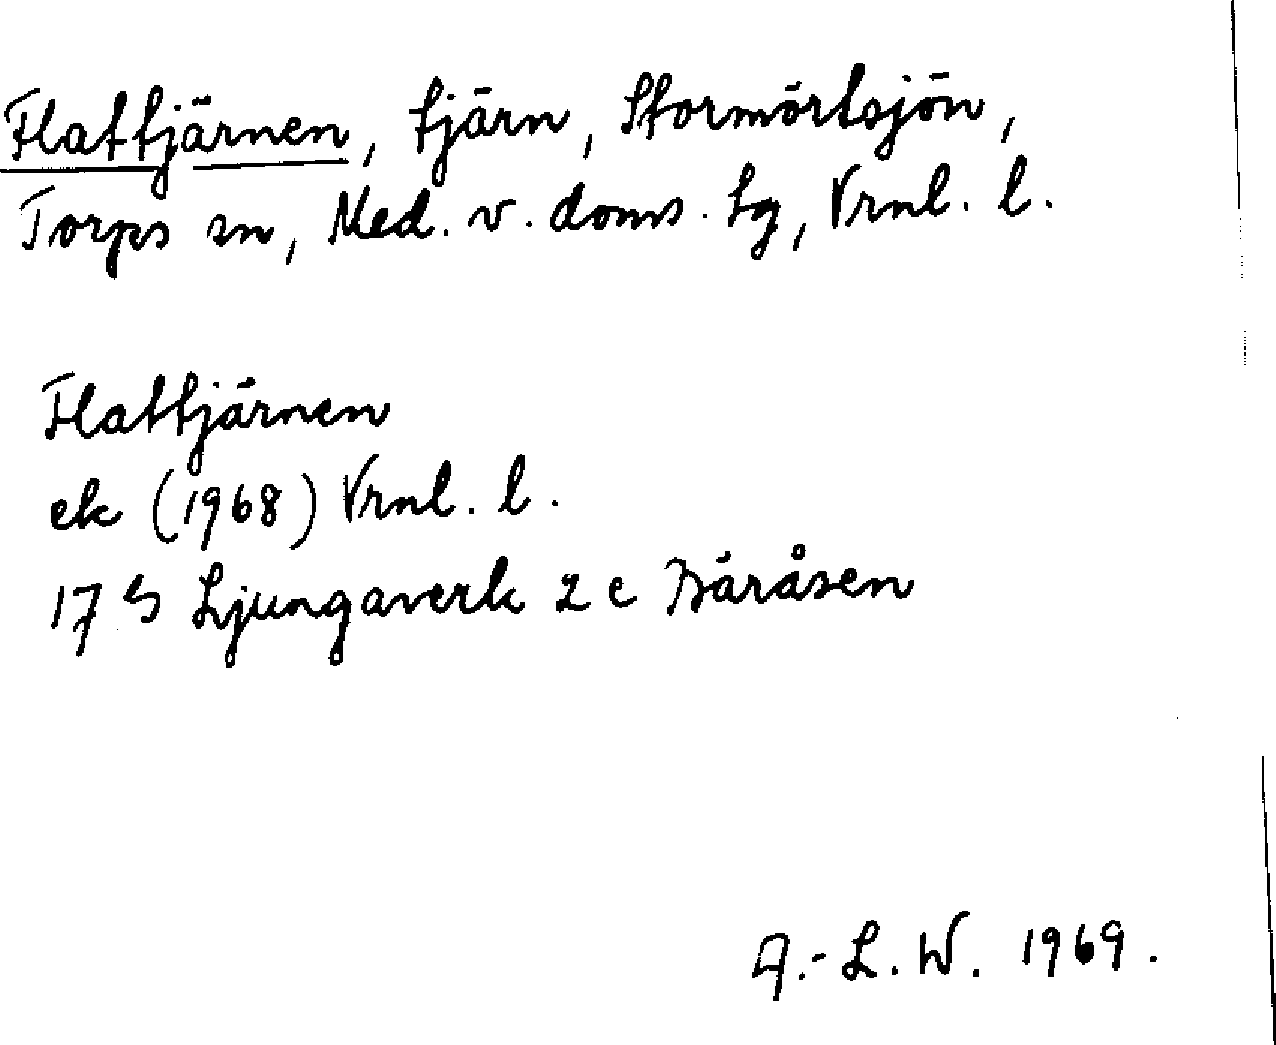 Flattjärnen, tjärn, Stormörtsjön,
Torps sn, Med. v. doms. tg, Vrnl. l.
Flattjärnen
ek (1968) Vrnl. l.
17 G Ljungaverk 2 c Båråsen
A.-L.W. 1969.